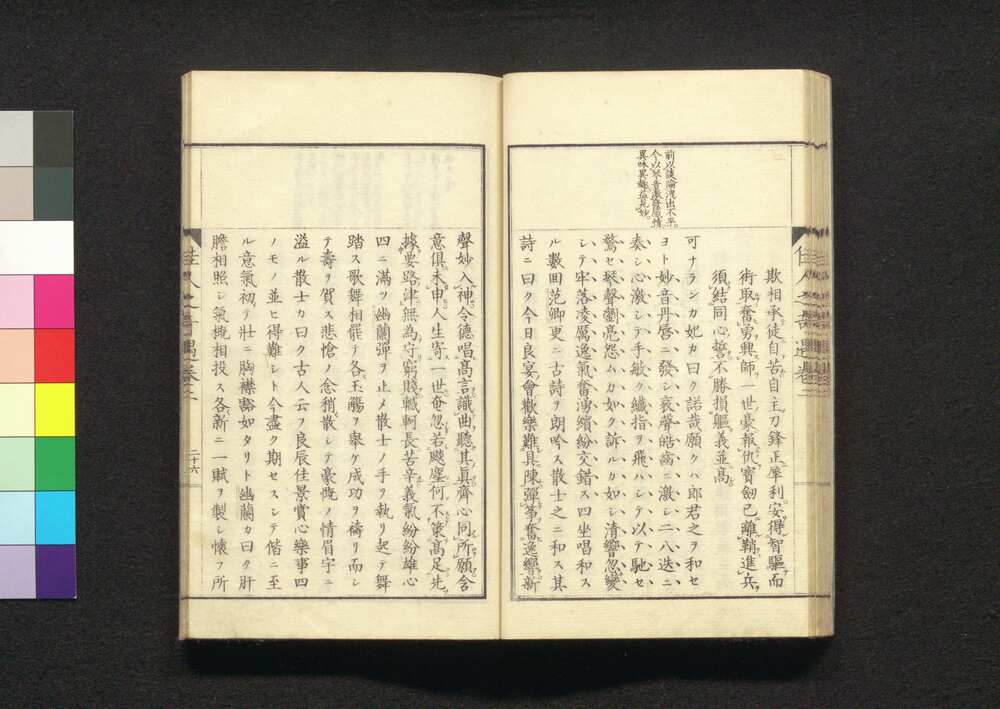 前以談論洩出不平。
今以琴音激發感情
異味異趣益見妙。
欺相承徒自苦自主刀鋒正犀利安得智驅而
術取奮勇興師一世豪報仇寶劍已離鞘進兵
須結同心誓不勝損軀義並高
可ナランカ妃カ曰ク諾哉願クハ郎君之ヲ和セ
ヨト妙音丹唇ニ發シ哀聲皓齒ニ激シ二八迭ニ
奏シ心激シテ手敏ク纖指ヲ飛ハシテ以テ馳セ
驚セ琴聲劉亮怨ムカ如ク訴ルカ如シ清響忽變
シテ牢落凌厲逸氣奮湧繽紛交錯ス四坐唱和ス
ル數回范卿更ニ古詩ヲ朗吟ス散士之ニ和ス其
詩ニ曰ク今日良宴會歡樂難具陳彈箏奮逸響新
聲妙入神令德唱高言識曲聽其眞齊心同所願含
意俱未申人生寄一世奄忽若飈塵何不策高足先
據要路津無為守窮賤轗軻長苦辛義氣紛紛雄心
四ニ滿ツ幽蘭彈ヲ止メ散士ノ手ヲ執リ起テ舞
踏ス歌舞相罷テ各玉觴ヲ舉ケ成功ヲ禱リ而シ
テ壽ヲ賀ス悲愴ノ念稍散シテ豪慨ノ情眉宇ニ
溢ル散士カ曰ク古人云フ良辰佳景賞心樂事四
ノモノ並ヒ得難シト今盡ク期セスシテ偕ニ至
ル意氣初テ壯ニ胸襟豁如タリト幽蘭カ曰ク肝
膽相照シ氣概相投ス各新ニ一賦ヲ製シ懷フ所
佳人之奇遇卷二
二十六